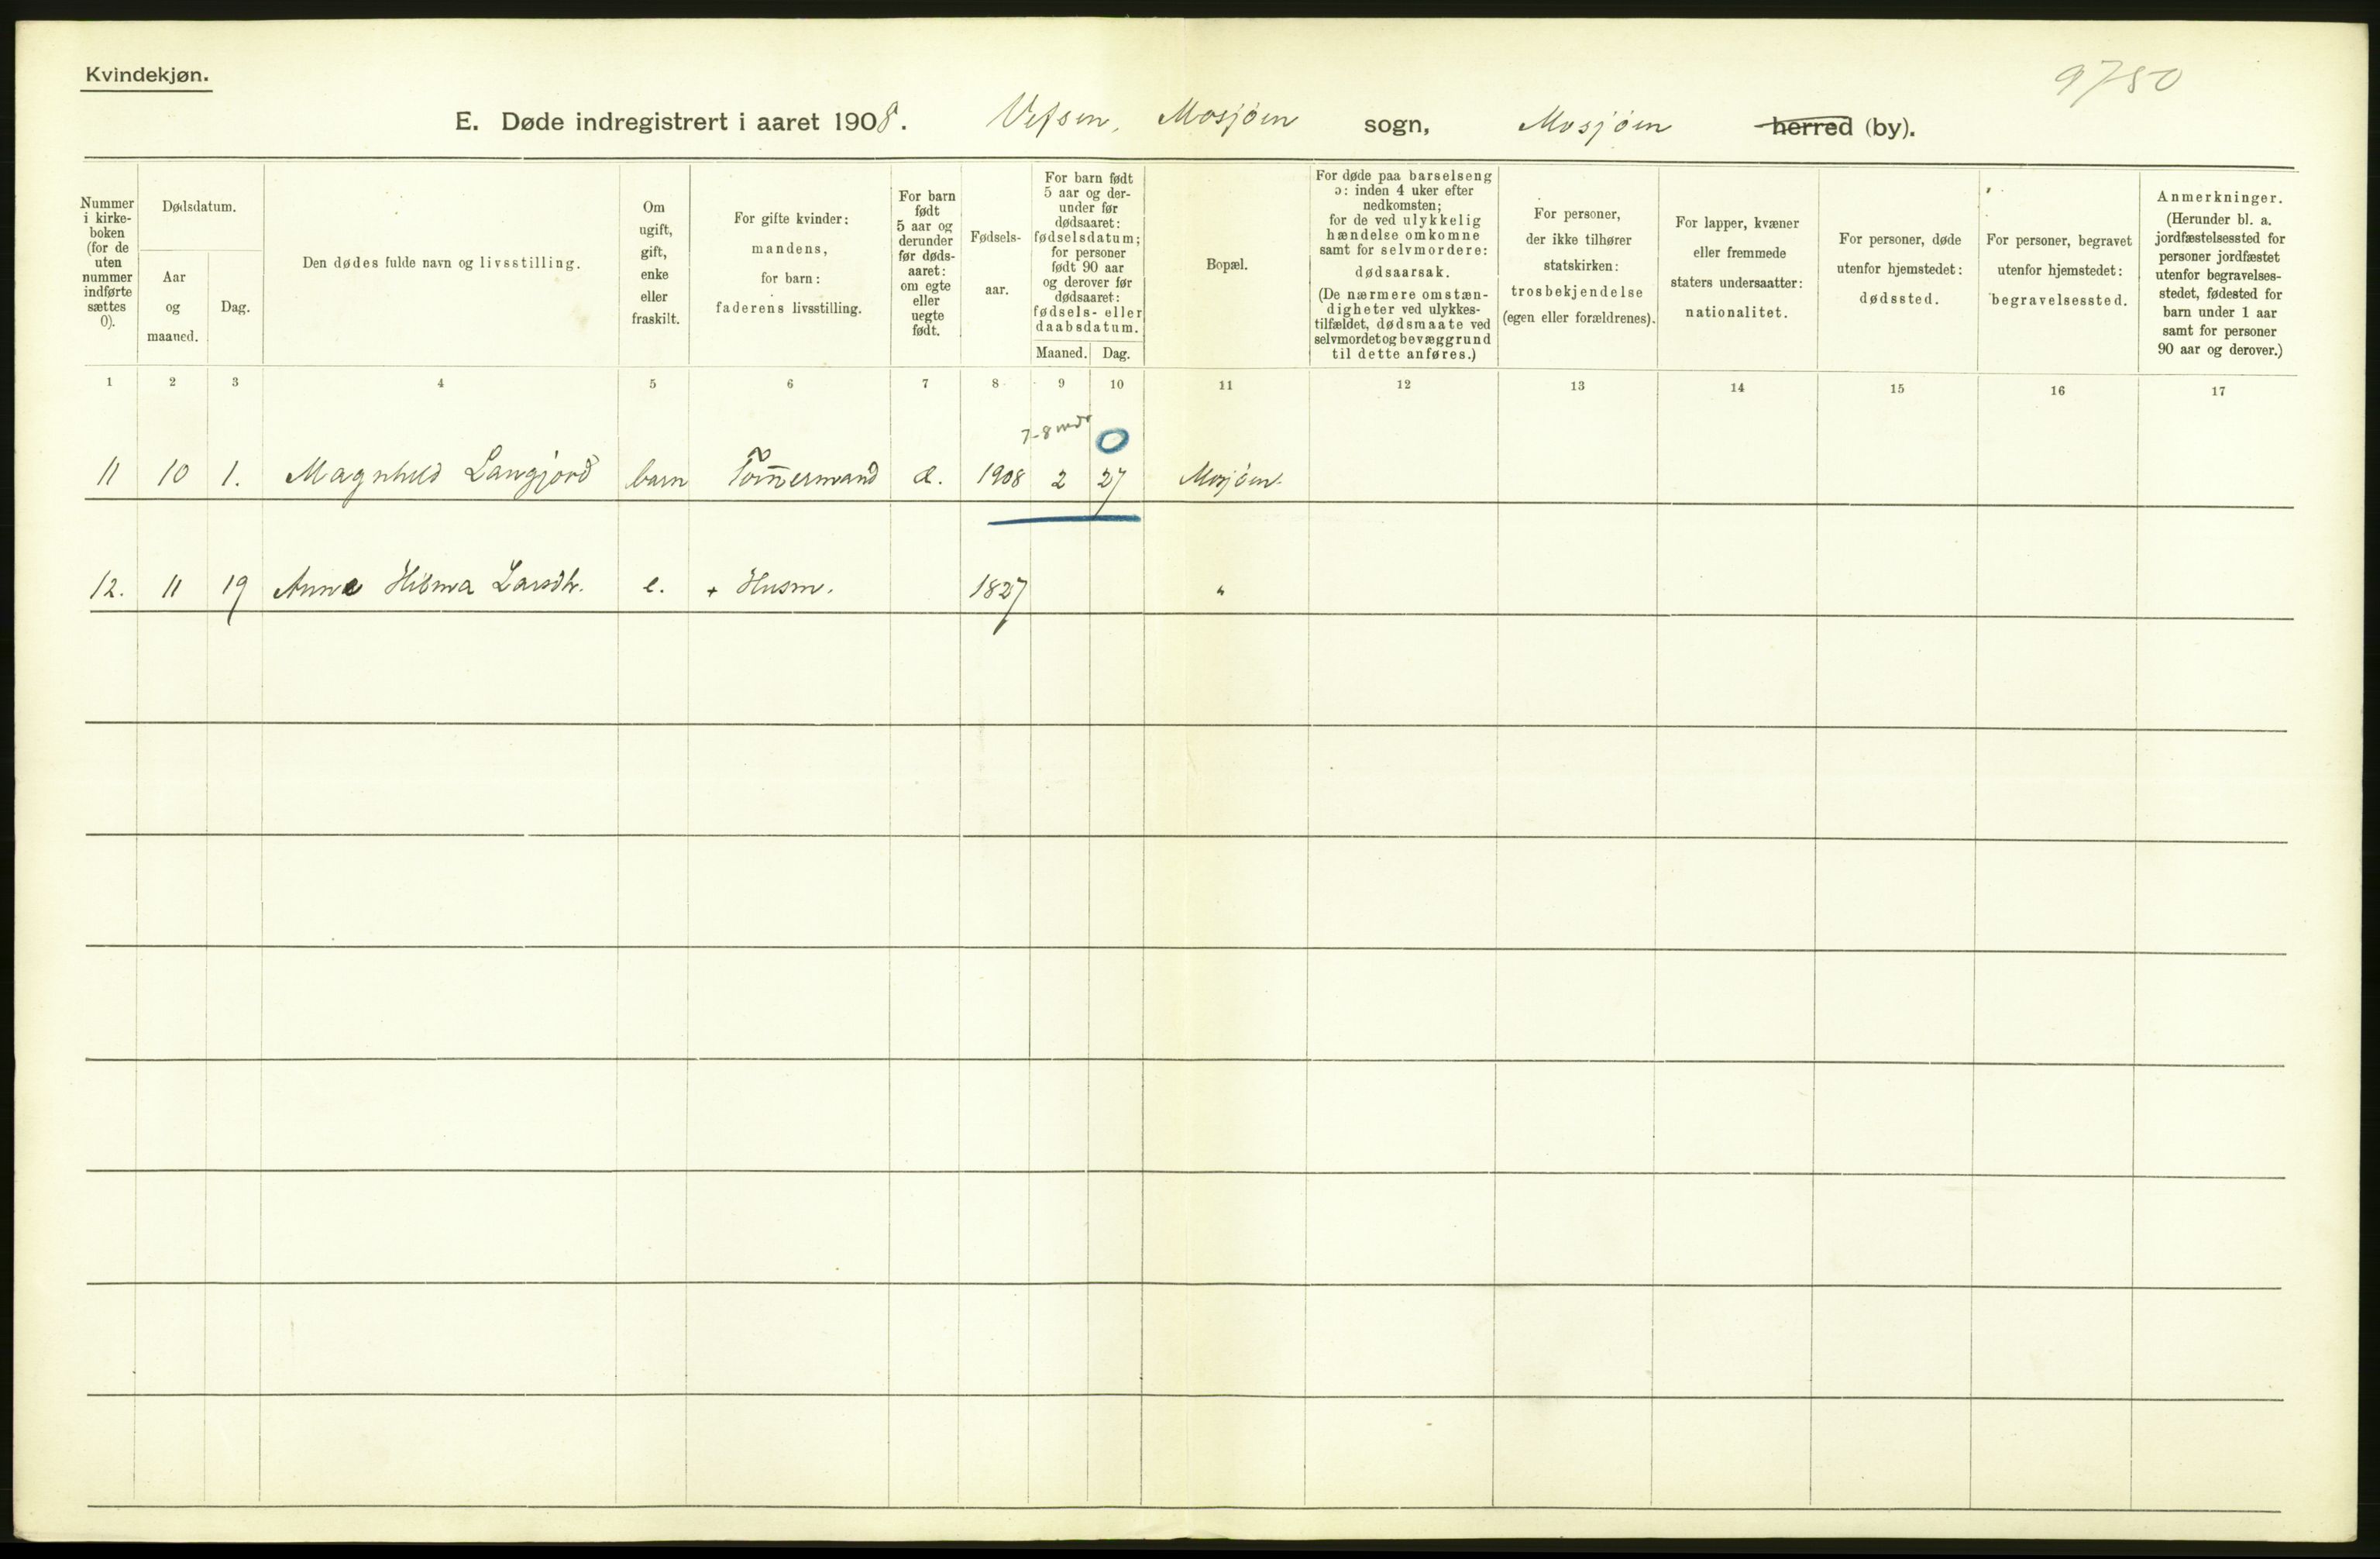 Kvindekjøn.
9750
E. Døde indregistrert i aaret 1908. Vefsen, Mosjöen sogn, Mosjöen herred (by).
Nummer
i kirke-
boken
(for de
uten
nummer
indførte
sættes
0).
Dødsdatum.
Aar
og
maaned.
Dag.
Den dødes fulde navn og livsstilling.
Om
ugift,
gift,
enke
eller
fraskilt.
For gifte kvinder:
mandens,
for barn:
faderens livsstilling.
For barn
født
5 aar og
derunder
før døds-
aaret:
om egte
eller
uegte
født.
Fødsels-
aar.
For barn født
5 aar og der-
under før
dødsaaret:
fødselsdatum;
for personer
født 90 aar
og derover før
dødsaaret:
fødsels- eller
daabsdatum.
Maaned.
Dag.
Bopæl.
For døde paa barselseng
ɔ: inden 4 uker efter
nedkomsten;
for de ved ulykkelig
hændelse omkomne
samt for selvmordere:
dødsaarsak.
(De nærmere omstæn-
digheter ved ulykkes-
tilfældet, dødsmaate ved
selvmordet og bevæggrund
til dette anføres.)
For personer,
der ikke tilhører
statskirken:
trosbekjendelse
(egen eller forældrenes).
For lapper, kvæner
eller fremmede
staters undersaatter:
nationalitet.
For personer, døde
utenfor hjemstedet:
dødssted.
For personer, begravet
utenfor hjemstedet:
begravelsessted.
Anmerkninger.
(Herunder bl. a.
jordfæstelsessted for
personer jordfæstet
utenfor begravelses-
stedet, fødested for
barn under 1 aar
samt for personer
90 aar og derover.)
1 2 3 4 5 6 7 8 9 10 11 12 13 14 15 16 17
7-8 mdr 0
11 10 1. Magnhild Langjord barn Tømmermand Æ. 1908 2 27 Mosjöen.
12. 11 19 Anna Hilma Larsdtr. e. + Husm. 1827 "